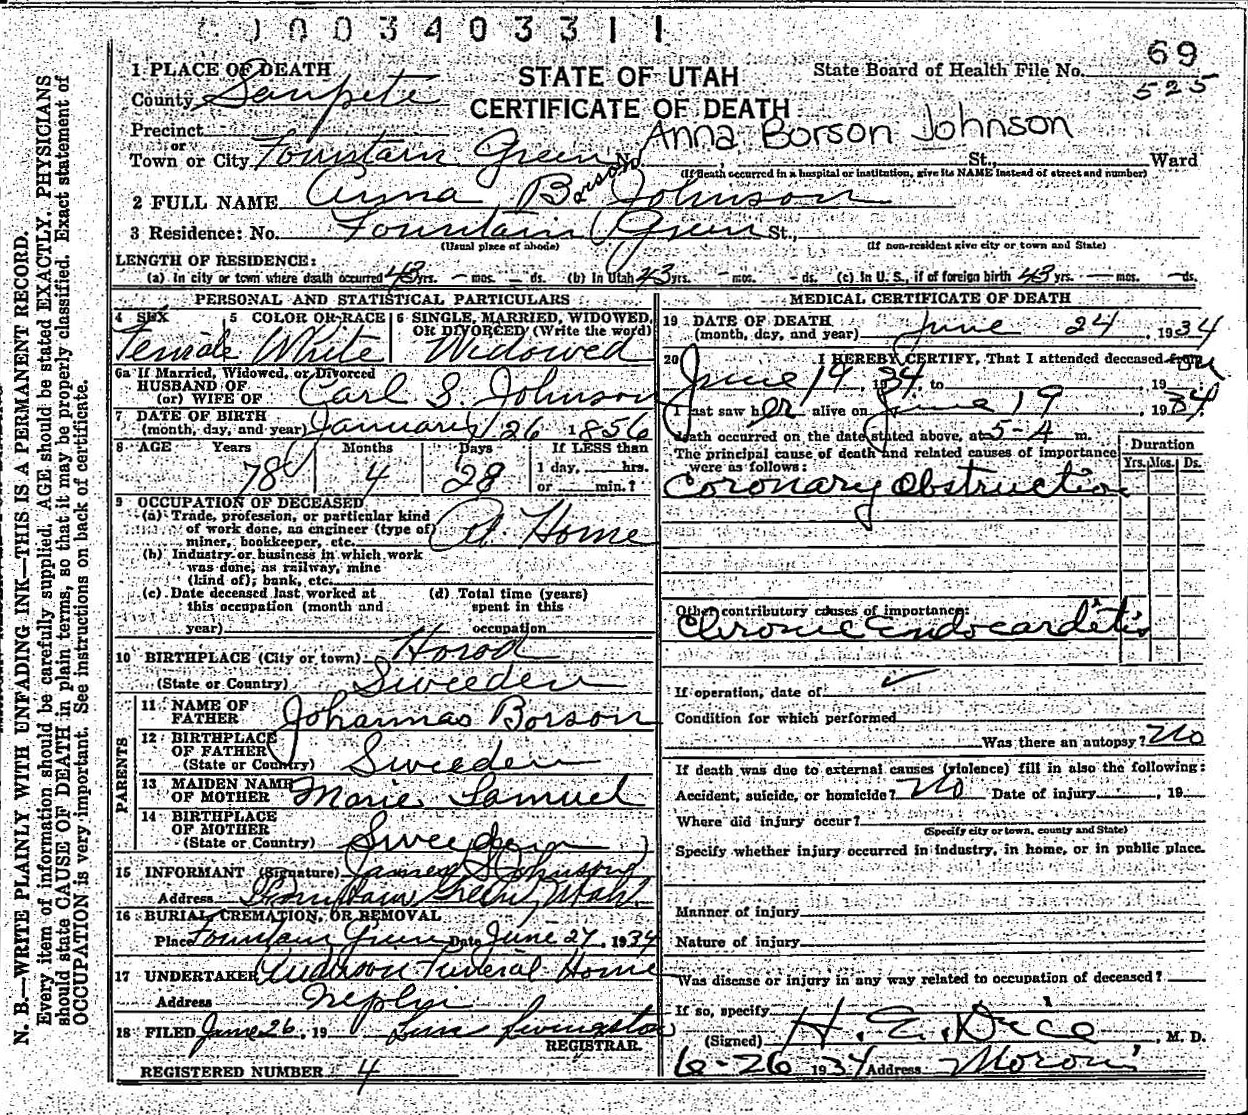 0 0 0 3 4 0 3 3 1 1
69
1 PLACE OF DEATH
STATE OF UTAH
State Board of Health File No.
525
County Sanpete
CERTIFICATE OF DEATH
Precinct
Anna Borson Johnson
or
Town or City Fountain Green No. St., Ward
(If death occurred in a hospital or institution, give its NAME instead of street and number)
2 FULL NAME Anna Borson Johnson
3 Residence: No. Fountain Green St.,
(Usual place of abode) (If non-resident give city or town and State)
LENGTH OF RESIDENCE:
(a) In city or town where death occurred 43 yrs. - mos. - ds. (b) In Utah 43 yrs. - mos. - ds. (c) In U. S., if of foreign birth 43 yrs. - mos. - ds.
PERSONAL AND STATISTICAL PARTICULARS
4 SEX 5 COLOR OR RACE 6 SINGLE, MARRIED, WIDOWED,
OR DIVORCED (Write the word)
Female White Widowed
6a If Married, Widowed, or Divorced
HUSBAND OF
(or) WIFE OF Carl S. Johnson
7 DATE OF BIRTH
(month, day, and year) January 26 1856
8 AGE Years Months Days If LESS than
78 4 28 1 day, hrs.
or min.?
9 OCCUPATION OF DECEASED
(a) Trade, profession, or particular kind
of work done, as engineer (type of)
miner, bookkeeper, etc. At Home
(b) Industry or business in which work
was done, as railway, mine
(kind of); bank, etc.
(c) Date deceased last worked at (d) Total time (years)
this occupation (month and spent in this
year) occupation
10 BIRTHPLACE (City or town) Horod
(State or Country) Sweeden
PARENTS
11 NAME OF
FATHER Johannas Borson
12 BIRTHPLACE
OF FATHER
(State or Country) Sweeden
13 MAIDEN NAME
OF MOTHER Marie Samuel
14 BIRTHPLACE
OF MOTHER
(State or Country) Sweeden
15 INFORMANT (Signature) James S Johnson
Address Fountain Green, Utah.
16 BURIAL, CREMATION, OR REMOVAL
Place Fountain Green Date June 27, 1934
17 UNDERTAKER Anderson Funeral Home
Address Nephi
18 FILED June 26, 19 Livingston
REGISTRAR.
REGISTERED NUMBER 4
MEDICAL CERTIFICATE OF DEATH
19 DATE OF DEATH
(month, day, and year) June 24 1934
20 I HEREBY CERTIFY, That I attended deceased from
June 19 1934, to 19
I last saw her alive on June 19 1934
death occurred on the date stated above, at 5-A m.
The principal cause of death and related causes of importance
were as follows:
Duration
Yrs. Mos. Ds.
Coronary Obstruction
Other contributory causes of importance:
Chronic Endocarditis
If operation, date of
Condition for which performed
Was there an autopsy? No
If death was due to external causes (violence) fill in also the following:
Accident, suicide, or homicide? No Date of injury , 19
Where did injury occur?
(Specify city or town, county and State)
Specify whether injury occurred in industry, in home, or in public place.
Manner of injury
Nature of injury
Was disease or injury in any way related to occupation of deceased?
If so, specify
(Signed) H. E. Dice, M. D.
6-26 1934 Address Moroni
N. B.—WRITE PLAINLY WITH UNFADING INK—THIS IS A PERMANENT RECORD.
Every item of information should be carefully supplied. AGE should be stated EXACTLY. PHYSICIANS
should state CAUSE OF DEATH in plain terms, so that it may be properly classified. Exact statement of
OCCUPATION is very important. See instructions on back of certificate.